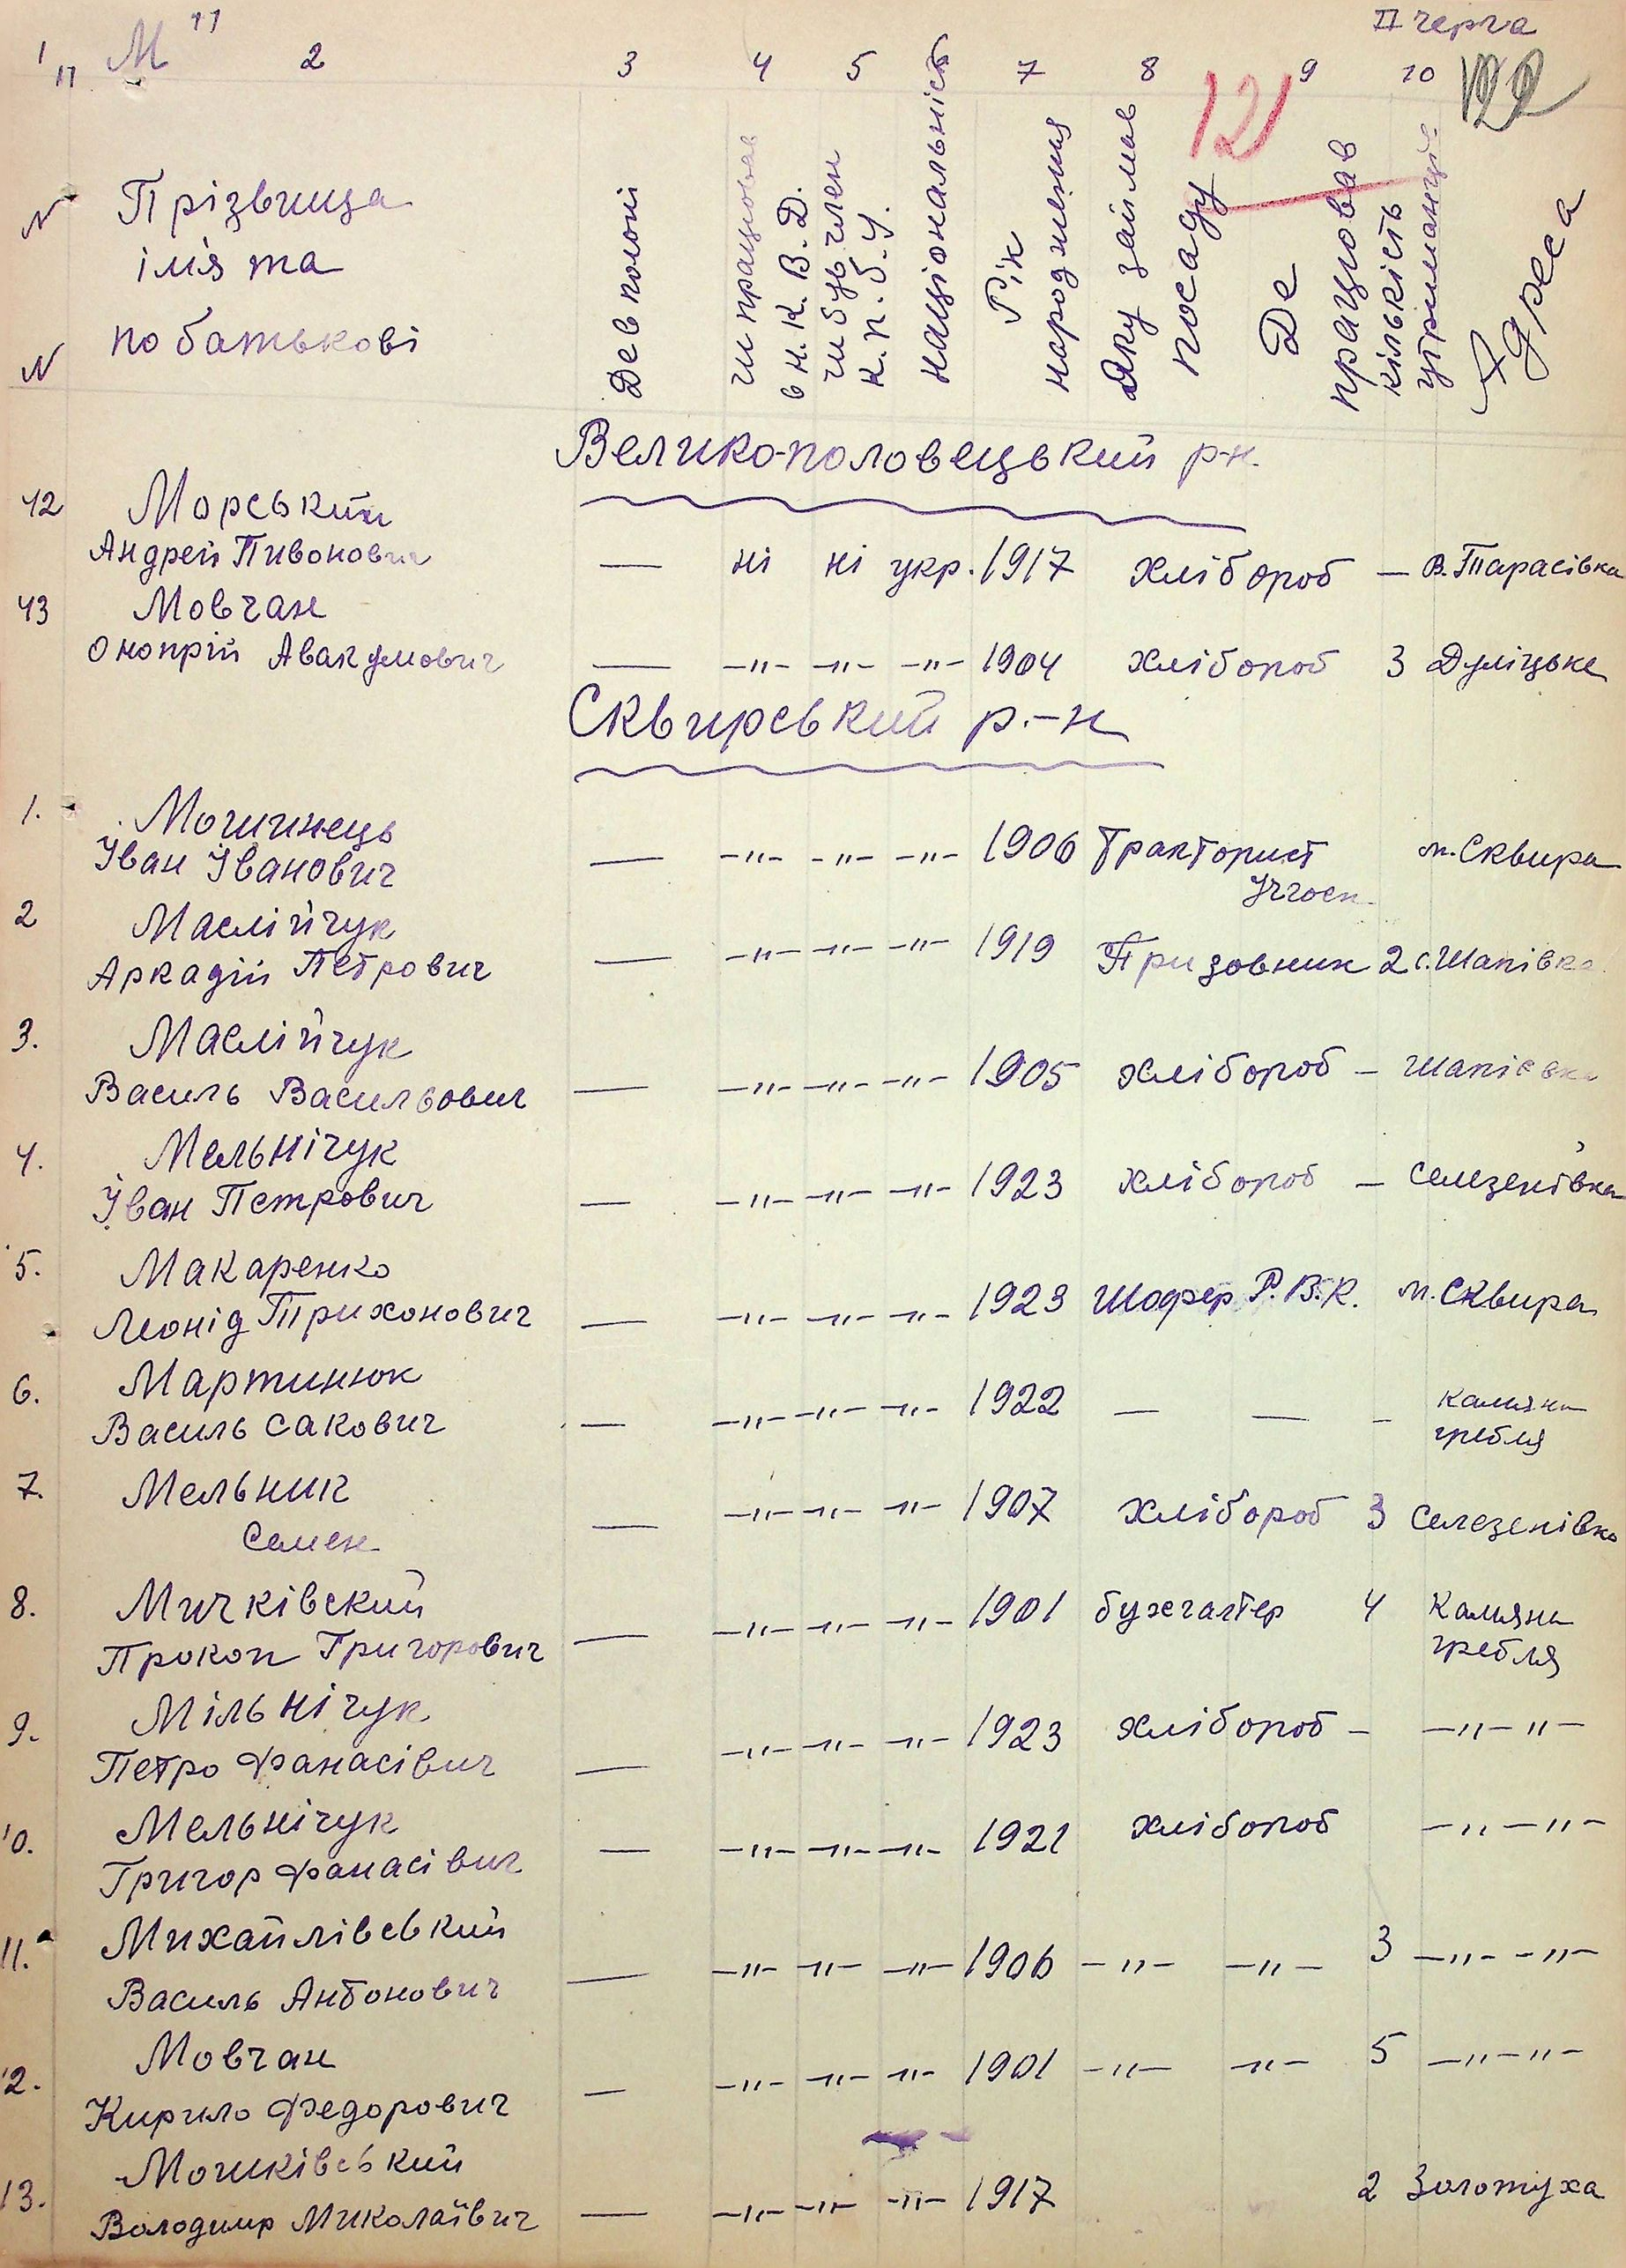 "М"
ІІ черга
1 2 3 4 5 7 8 9 10
121
122
N N
Прізвища
ім'я та
по батькові
Де в полоні
чи працював
в Н.К.В.Д.
чи був член
К.П.б.У.
національність
Рік
народження
Яку займав
посаду
Де
працював
кількість
утриманців
Адреса
Велико-половецький р-н.
42 Морський
Андрей Пивонович — ні ні укр. 1917 хлібороб — В. Тарасівка
43 Мовчан
Онопрій Авакумович — -"- -"- -"- 1904 хлібороб 3 Дуліцьке
Сквирський р.-н
1. Мошинець
Іван Іванович — -"- -"- -"- 1906 Тракторист м. Сквира
Учгосп
2 Маслійчук
Аркадій Петрович — -"- -"- -"- 1919 Призовник 2 с. Шапівка
3. Маслійчук
Василь Васильович — -"- -"- -"- 1905 хлібороб — Шапівка
4. Мельнічук
Іван Петрович — -"- -"- -"- 1923 хлібороб — Селезенівка
5. Макаренко
Леонід Трихонович — -"- -"- -"- 1923 Шофер Р.В.К. м. Сквира
6. Мартинюк
Василь Сакович — -"- -"- -"- 1922 — — — Камяна
гребля
7. Мельник
Семен — -"- -"- -"- 1907 хлібороб 3 Селезенівка
8. Мичківский
Прокоп Григорович — -"- -"- -"- 1901 бухгалтер 4 Камяна
гребля
9. Мільнічук
Петро Фанасівич — -"- -"- -"- 1923 хлібороб — -"-"-
10. Мельнічук
Григор Фанасівич — -"- -"- -"- 1921 хлібороб -"-"-
11. Михайлівський
Василь Антонович — -"- -"- -"- 1906 -"- -"- 3 -"-"-
12. Мовчан
Кирило Федорович — -"- -"- -"- 1901 -"- -"- 5 -"-"-
13. Мошківський
Володимр Миколаївич — -"- -"- -"- 1917 2 Золотуха